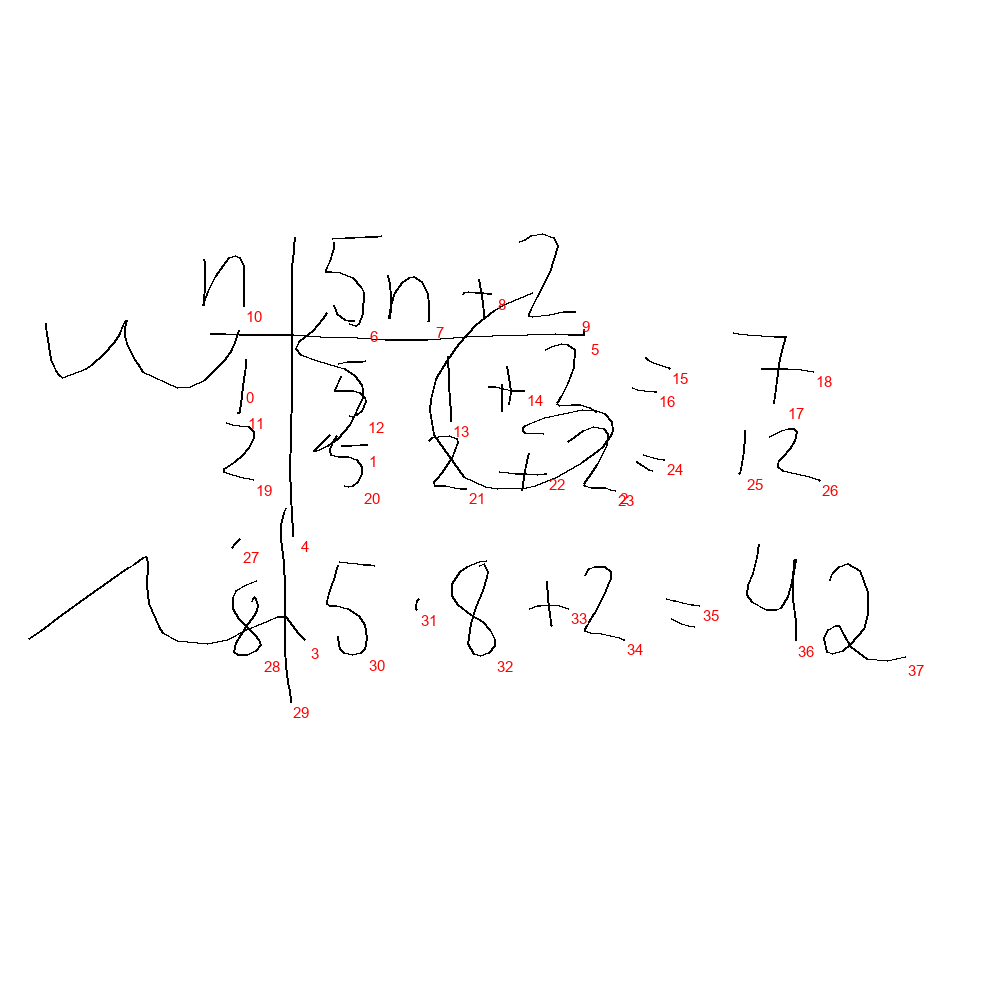 n 5n+2
1 5 1 + 2 = 7
2 5 2 + 2 = 12
8 5 · 8 + 2 = 42
0
1
2
3
4
5
6
7
8
9
10
11
12
13
14
15
16
17
18
19
20
21
22
23
24
25
26
27
28
29
30
31
32
33
34
35
36
37